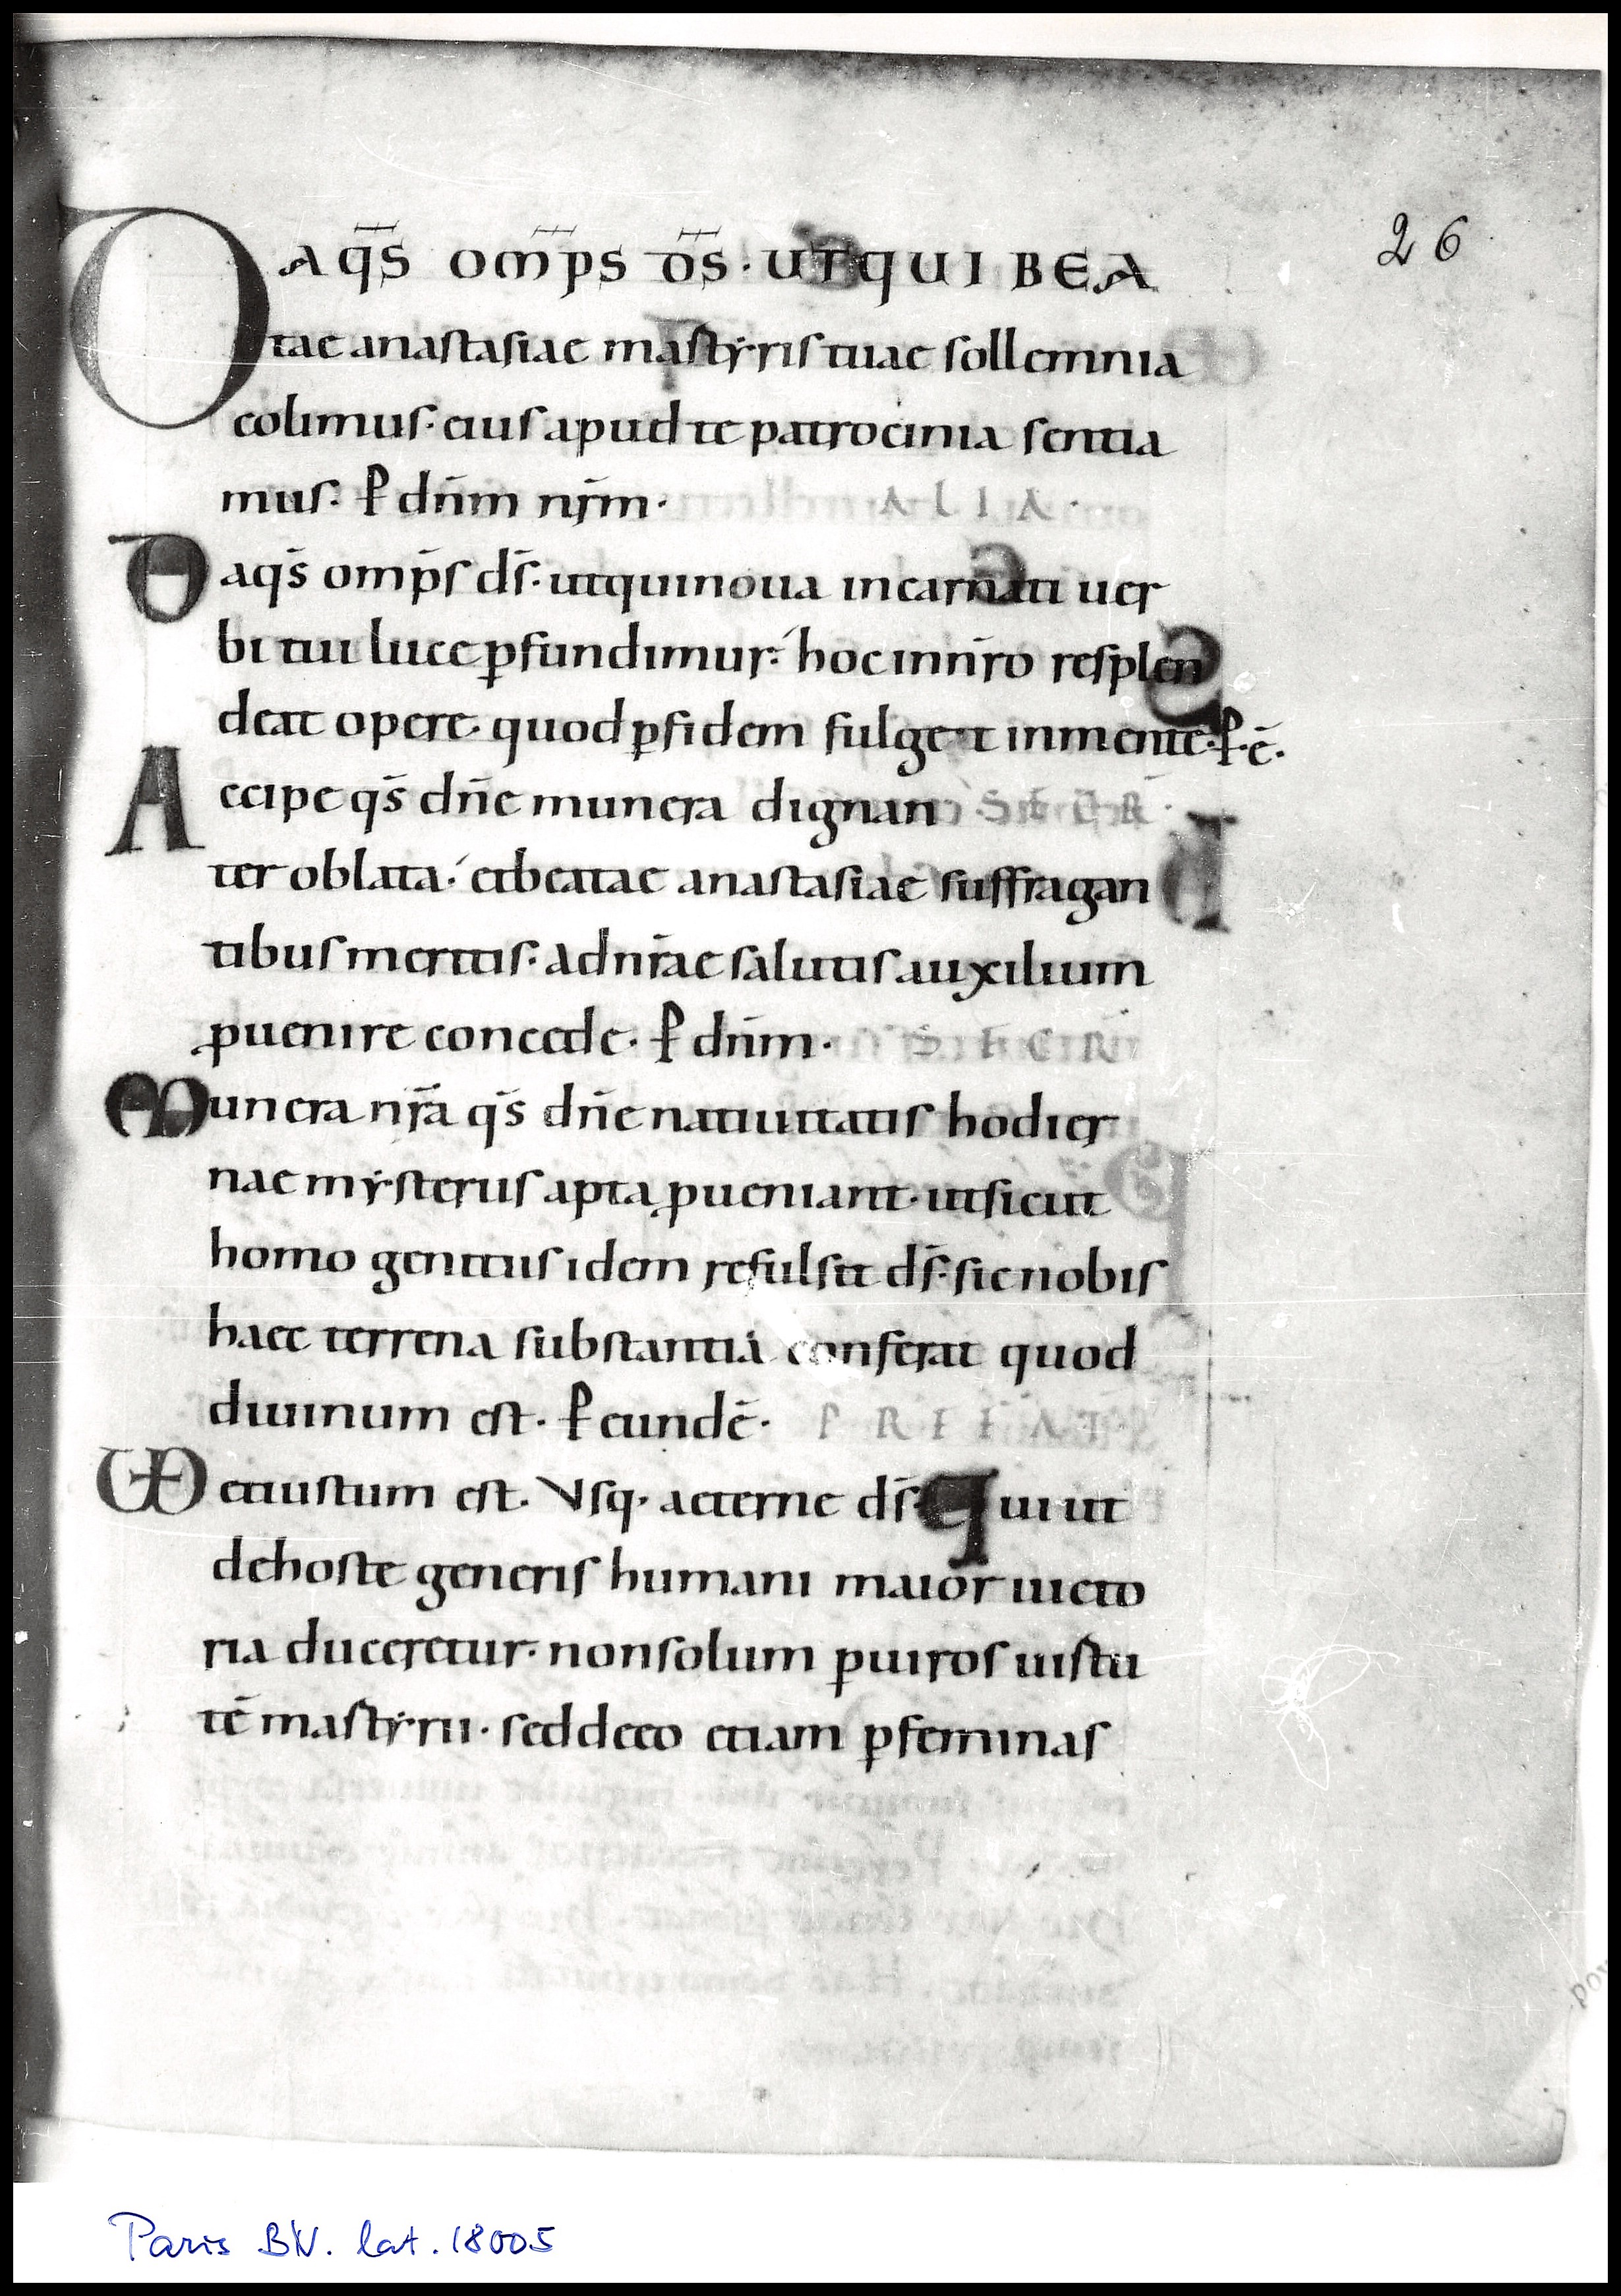 26
DA q̄s om̄ps d̄s · UT QUI BEA
tae anastasiae martyris tuae sollemnia
colimus · eius apud te patrocinia sentia
mus · ꝑ dn̄m nr̄m · ALIA ·
Da q̄s om̄ps ds̄ · ut qui noua incarnati uer
bi tui luce ꝑfundimur · hoc in nr̄o resplen
deat opere · quod ꝑ fidem fulget in mente · ꝑ · ē ·
Accipe q̄s dn̄e munera dignan SECR ·
ter oblata · et beatae anastasiae suffragan
tibus meritis · ad nr̄ae salutis auxilium
ꝓuenire concede · ꝑ dn̄m · SECR
Munera nr̄a q̄s dn̄e natiuitatis hodier
nae mysteriis apta ꝓueniant · ut sicut
homo genitus idem refulsit ds̄ · sic nobis
haec terrena substantia conferat quod
diuinum est · ꝑ eundē · PREFAT ·
VD et iustum est · Vsq · aeterne ds̄ · Qui ut
de hoste generis humani maior uicto
ria duceretur · non solum ꝑ uiros uirtu
tē martyrii · sed de eo etiam ꝑ feminas
Paris BN. lat. 18005